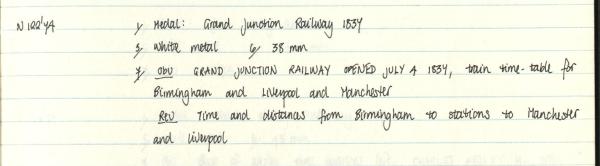 N 122'74 1/ Medal: Grand Junction Railway 1837
5/ White metal 6/ 38 mm
7/ Obv GRAND JUNCTION RAILWAY OPENED JULY 4 1837, train time-table for
Birmingham and Liverpool and Manchester
Rev Time and distances from Birmingham to stations to Manchester
and Liverpool